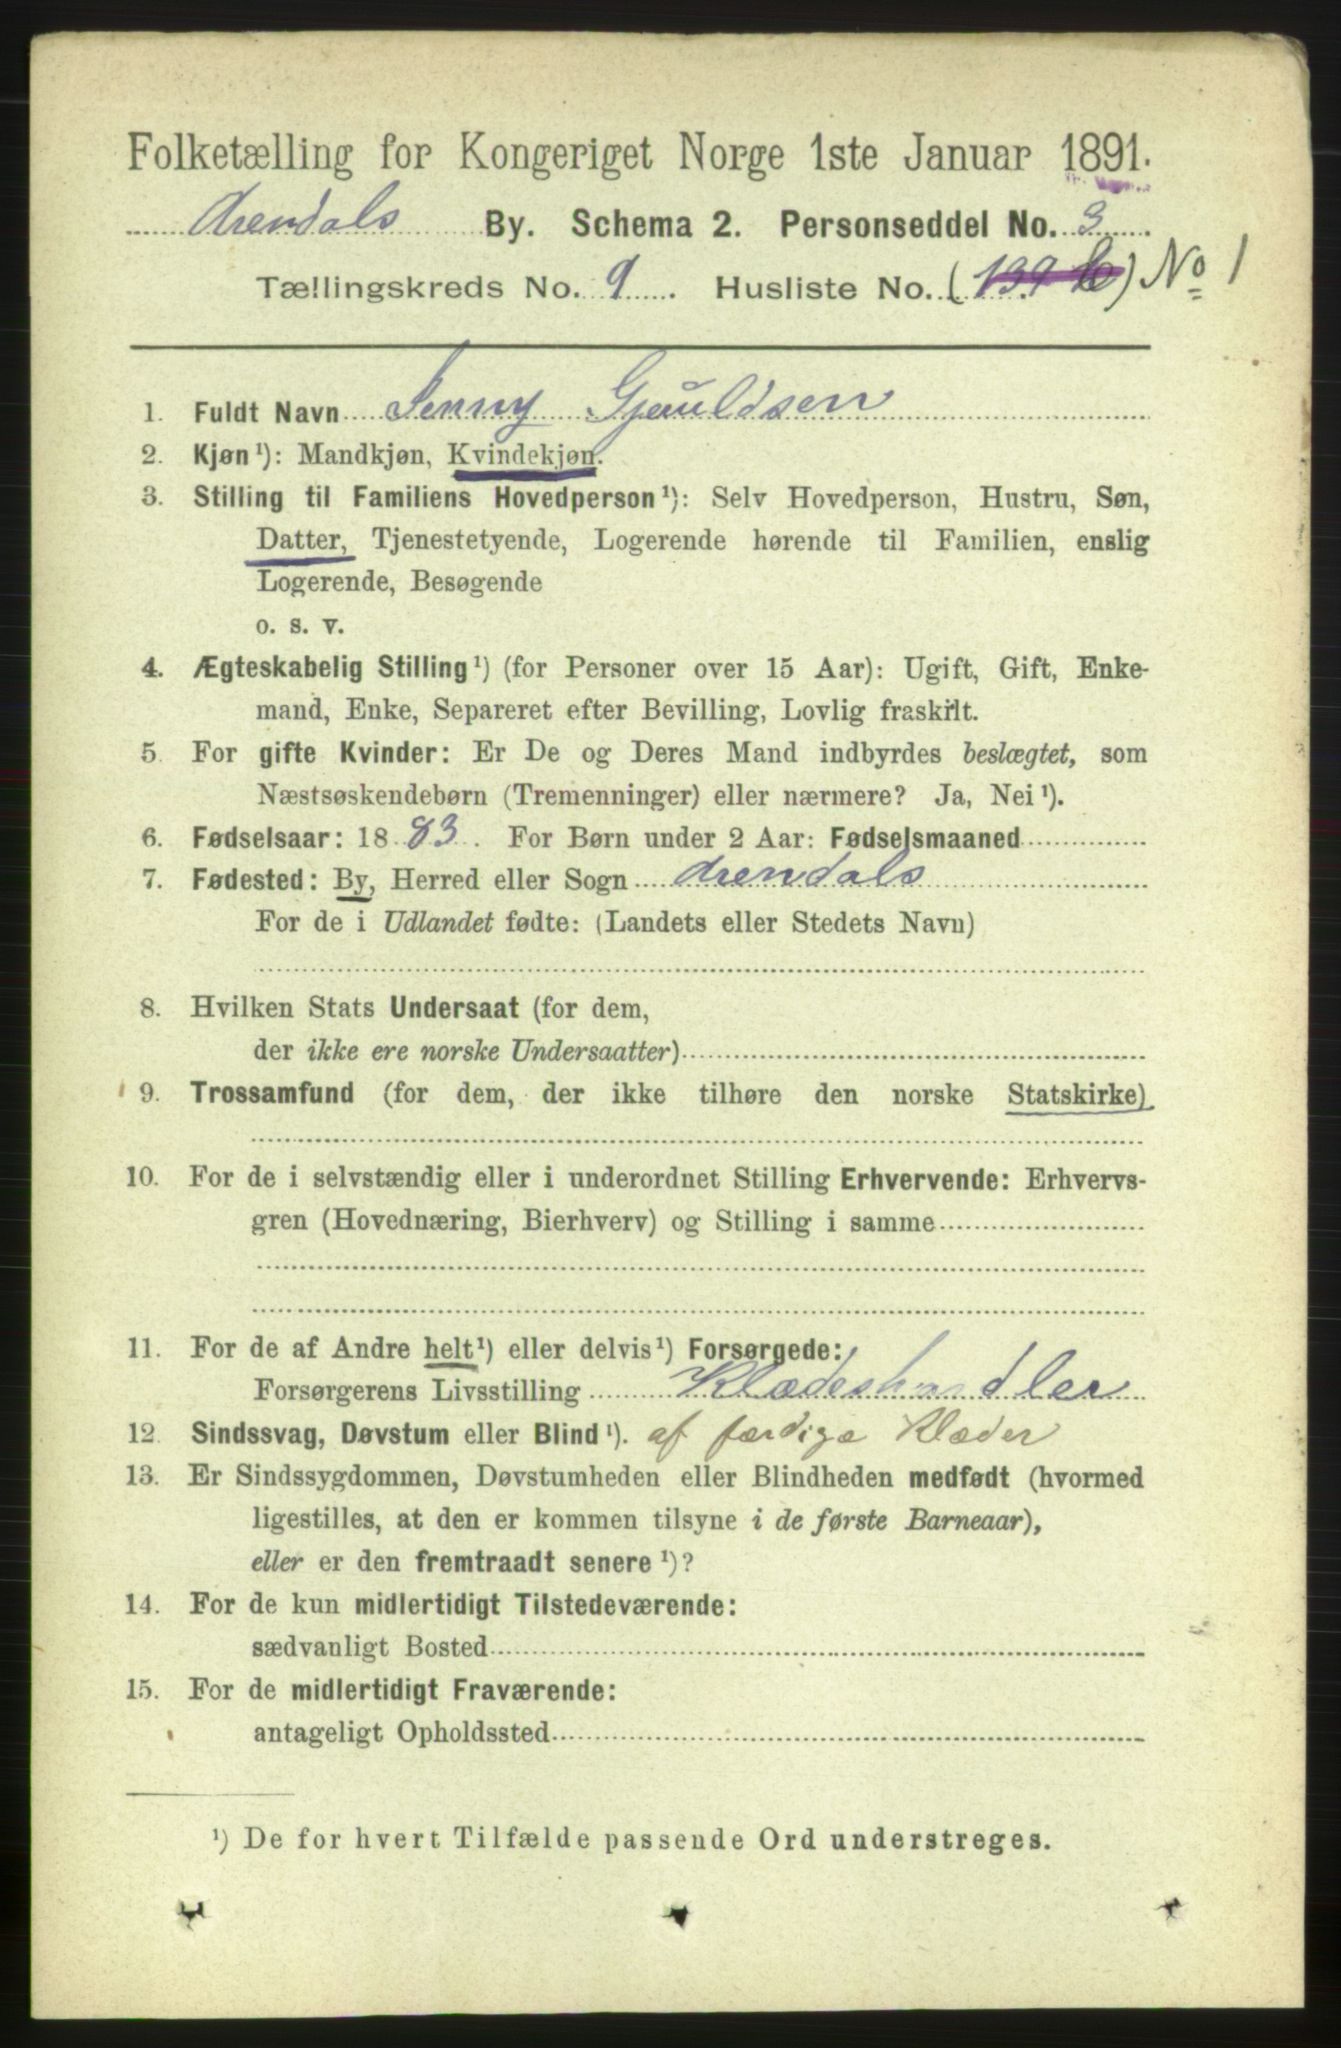 Folketælling for Kongeriget Norge 1ste Januar 1891.
Arendals By. Schema 2. Personseddel No. 3
Tællingskreds No. 9. Husliste No. (139 b) No 1
1. Fuldt Navn Jenny Gjeruldsen
2. Kjøn ¹): Mandkjøn, Kvindekjøn.
3. Stilling til Familiens Hovedperson ¹): Selv Hovedperson, Hustru, Søn,
Datter, Tjenestetyende, Logerende hørende til Familien, enslig
Logerende, Besøgende
o. s. v.
4. Ægteskabelig Stilling ¹) (for Personer over 15 Aar): Ugift, Gift, Enke-
mand, Enke, Separeret efter Bevilling, Lovlig fraskilt.
5. For gifte Kvinder: Er De og Deres Mand indbyrdes beslægtet, som
Næstsøskendebørn (Tremenninger) eller nærmere? Ja, Nei ¹).
6. Fødselsaar: 1883. For Børn under 2 Aar: Fødselsmaaned
7. Fødested: By, Herred eller Sogn Arendals
For de i Udlandet fødte: (Landets eller Stedets Navn)
8. Hvilken Stats Undersaat (for dem,
der ikke ere norske Undersaatter)
9. Trossamfund (for dem, der ikke tilhøre den norske Statskirke)
10. For de i selvstændig eller i underordnet Stilling Erhvervende: Erhvervs-
gren (Hovednæring, Bierhverv) og Stilling i samme
11. For de af Andre helt ¹) eller delvis ¹) Forsørgede:
Forsørgerens Livsstilling Klædeshandler
12. Sindssvag, Døvstum eller Blind ¹). af færdige Klæder
13. Er Sindssygdommen, Døvstumheden eller Blindheden medfødt (hvormed
ligestilles, at den er kommen tilsyne i de første Barneaar),
eller er den fremtraadt senere ¹)?
14. For de kun midlertidigt Tilstedeværende:
sædvanligt Bosted
15. For de midlertidigt Fraværende:
antageligt Opholdssted
¹) De for hvert Tilfælde passende Ord understreges.